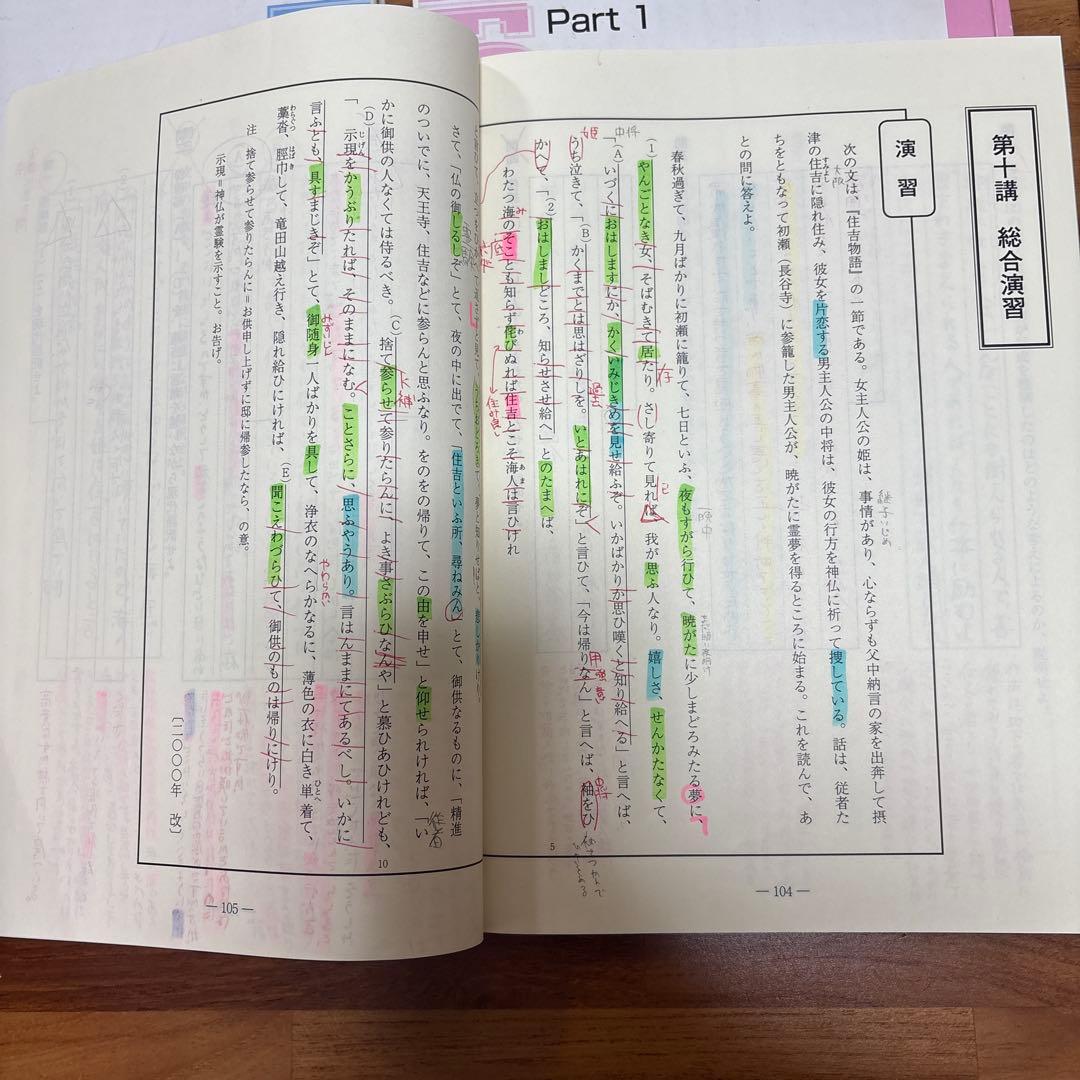 Part 1
第十講 総合演習
演習
次の文は、『住吉物語』の一節である。女主人公の姫は、事情があり、心ならずも父中納言の家を出奔して摂
津の住吉に隠れ住み、彼女を片恋する男主人公の中将は、彼女の行方を神仏に祈って捜している。話は、従者た
ちをともなって初瀬（長谷寺）に参籠した男主人公が、暁がたに霊夢を得るところに始まる。これを読んで、あ
との問に答えよ。
春秋過ぎて、九月ばかりに初瀬に籠りて、七日といふ、夜もすがら行ひて、暁がたに少しまどろみたる夢に、
(1)やんごとなき女、そばむきて居たり。さし寄りて見れば、我が思ふ人なり。嬉しさ、せんかたなくて、
「(A)いづくにおはしますにか、かくいみじきめを見せ給ふぞ。いかばかりか思ひ嘆くと知り給へる」と言へば、
うち泣きて、「(B)かくまでとは思はざりしを。いとあはれにぞ」と言ひて、「今は帰りなん」と言へば、袖をひ
かへて、「(2)おはしましどころ、知らせさせ給へ」とのたまへば、
わたつ海のそことも知らず侘びぬれば住吉とこそ海人は言ひけれ
さて、「仏の御しるしぞ」とて、夜の中に出でて、「住吉といふ所、尋ねみん」とて、御供なるものに、「精進
のついでに、天王寺、住吉などに参らんと思ふなり。をのをの帰りて、この由を申せ」と仰せられければ、「い
かに御供の人なくては侍るべき。(C)捨て参らせて参りたらんに、よき事さぶらひなんや」と慕ひあひけれども、
「(D)示現をかうぶりたれば、そのままになむ。ことさらに、思ふやうあり。言はんままにてあるべし。いかに
言ふとも、具すまじきぞ」とて、御随身一人ばかりを具して、浄衣のなへらかなるに、薄色の衣に白き単着て、
藁沓、脛巾して、竜田山越え行き、隠れ給ひにければ、(E)聞こえわづらひて、御供のものは帰りにけり。
注 捨て参らせて参りたらんに＝お供申し上げずに邸に帰参したなら、の意。
示現＝神仏が霊験を示すこと。お告げ。
〔二〇〇〇年 改〕
5
10
― 104 ―
― 105 ―
姫
中将
大阪
継子いじめ
存
過去
住み良し
やわらかい